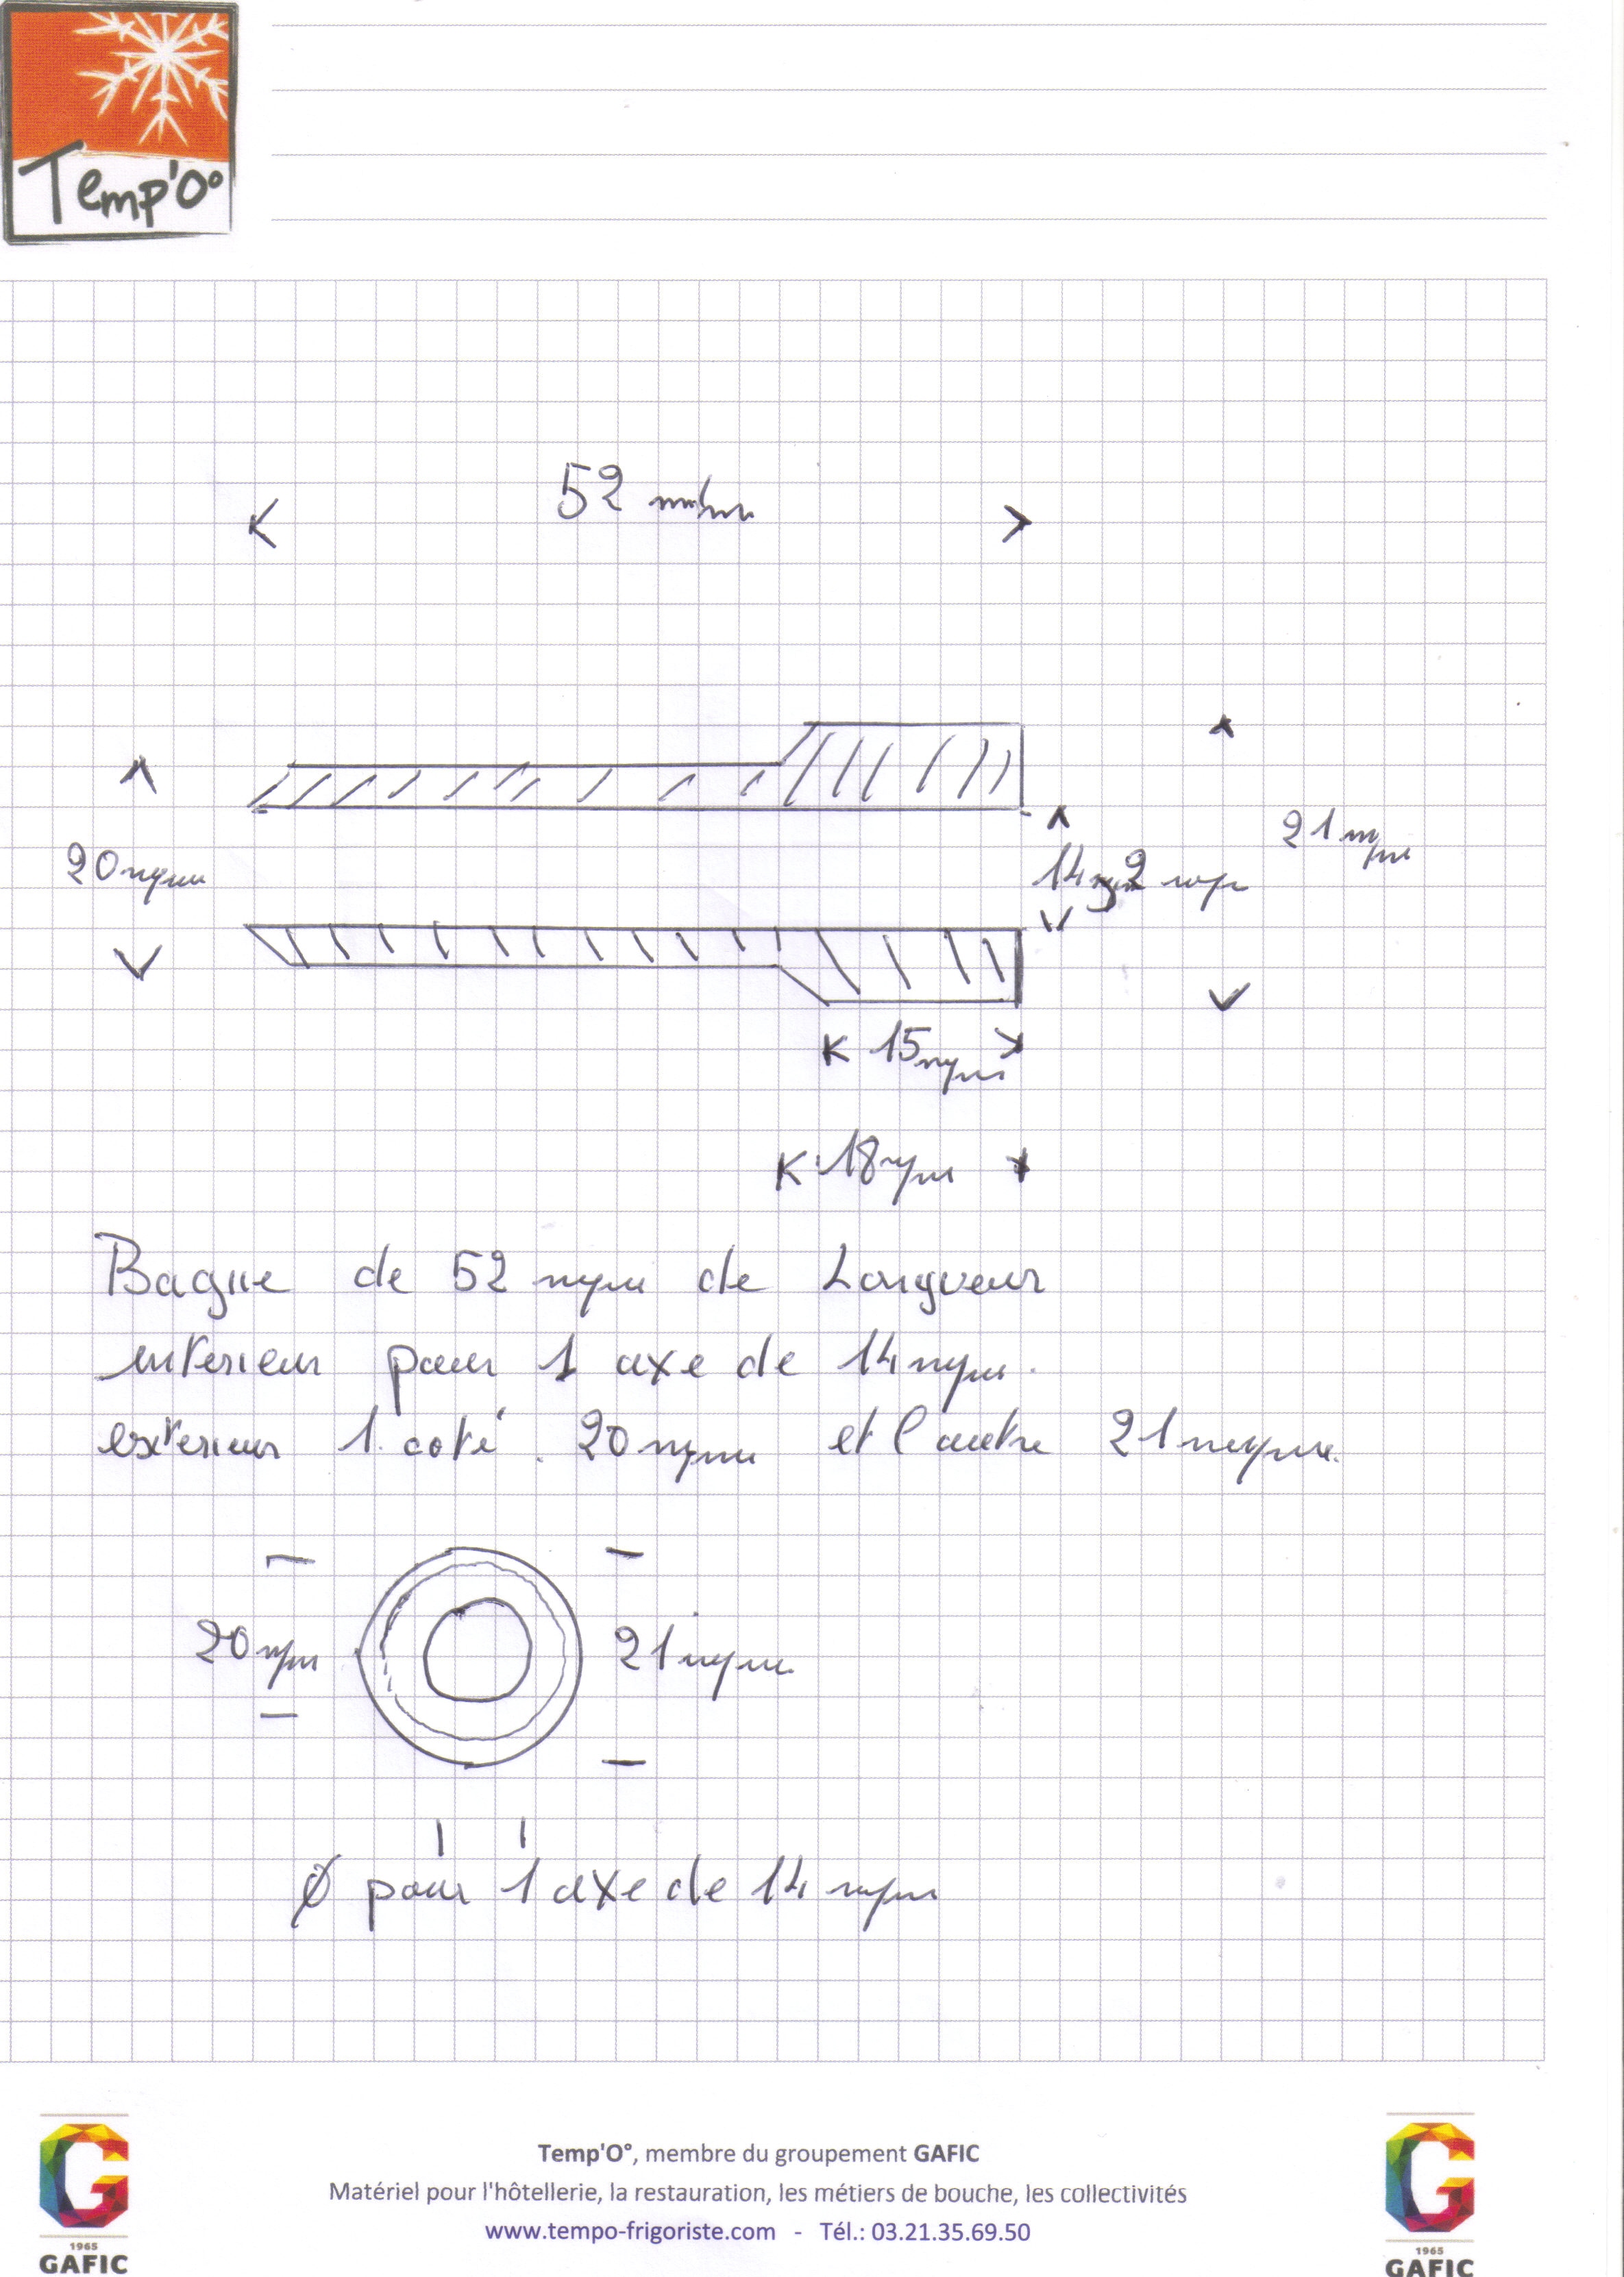 Temp'O°
52 mm
20 mm
14,2 mm
21 mm
15 mm
18 mm
Bague de 52 mm de Longueur
interieur pour 1 axe de 14 mm.
exterieur 1 coté. 20 mm et l'autre 21 mm.
20 mm
21 mm
Ø pour 1 axe de 14 mm
1965
GAFIC
Temp'O°, membre du groupement GAFIC
Matériel pour l'hôtellerie, la restauration, les métiers de bouche, les collectivités
www.tempo-frigoriste.com - Tél.: 03.21.35.69.50
1965
GAFIC